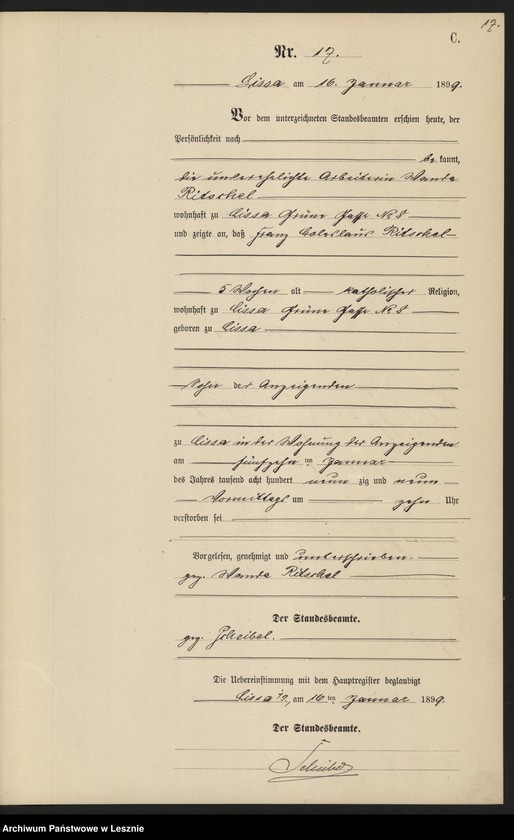 17.
C.
Nr. 17.
Lissa am 16. Januar 1899.
Vor dem unterzeichneten Standesbeamten erschien heute, der
Persönlichkeit nach
be kannt,
die unverehelichte Arbeiterin Wanda
Ritschel
wohnhaft zu Lissa Grüne Gasse No 8
und zeigte an, daß Franz Boleslaus Ritschel
5 Wochen alt katholischer Religion,
wohnhaft zu Lissa Grüne Gasse No 8
geboren zu Lissa
Sohn der Anzeigenden
zu Lissa in der Wohnung der Anzeigenden
am fünfzehn ten Januar
des Jahres tausend acht hundert neun zig und neun
Vormittags um zehn Uhr
verstorben sei
Vorgelesen, genehmigt und unterschrieben.
gez. Wanda Ritschel
Der Standesbeamte.
gez. Scheibel.
Die Uebereinstimmung mit dem Hauptregister beglaubigt
Lissa i/P., am 16 ten Januar 1899.
Der Standesbeamte.
Scheibel
Archiwum Państwowe w Lesznie